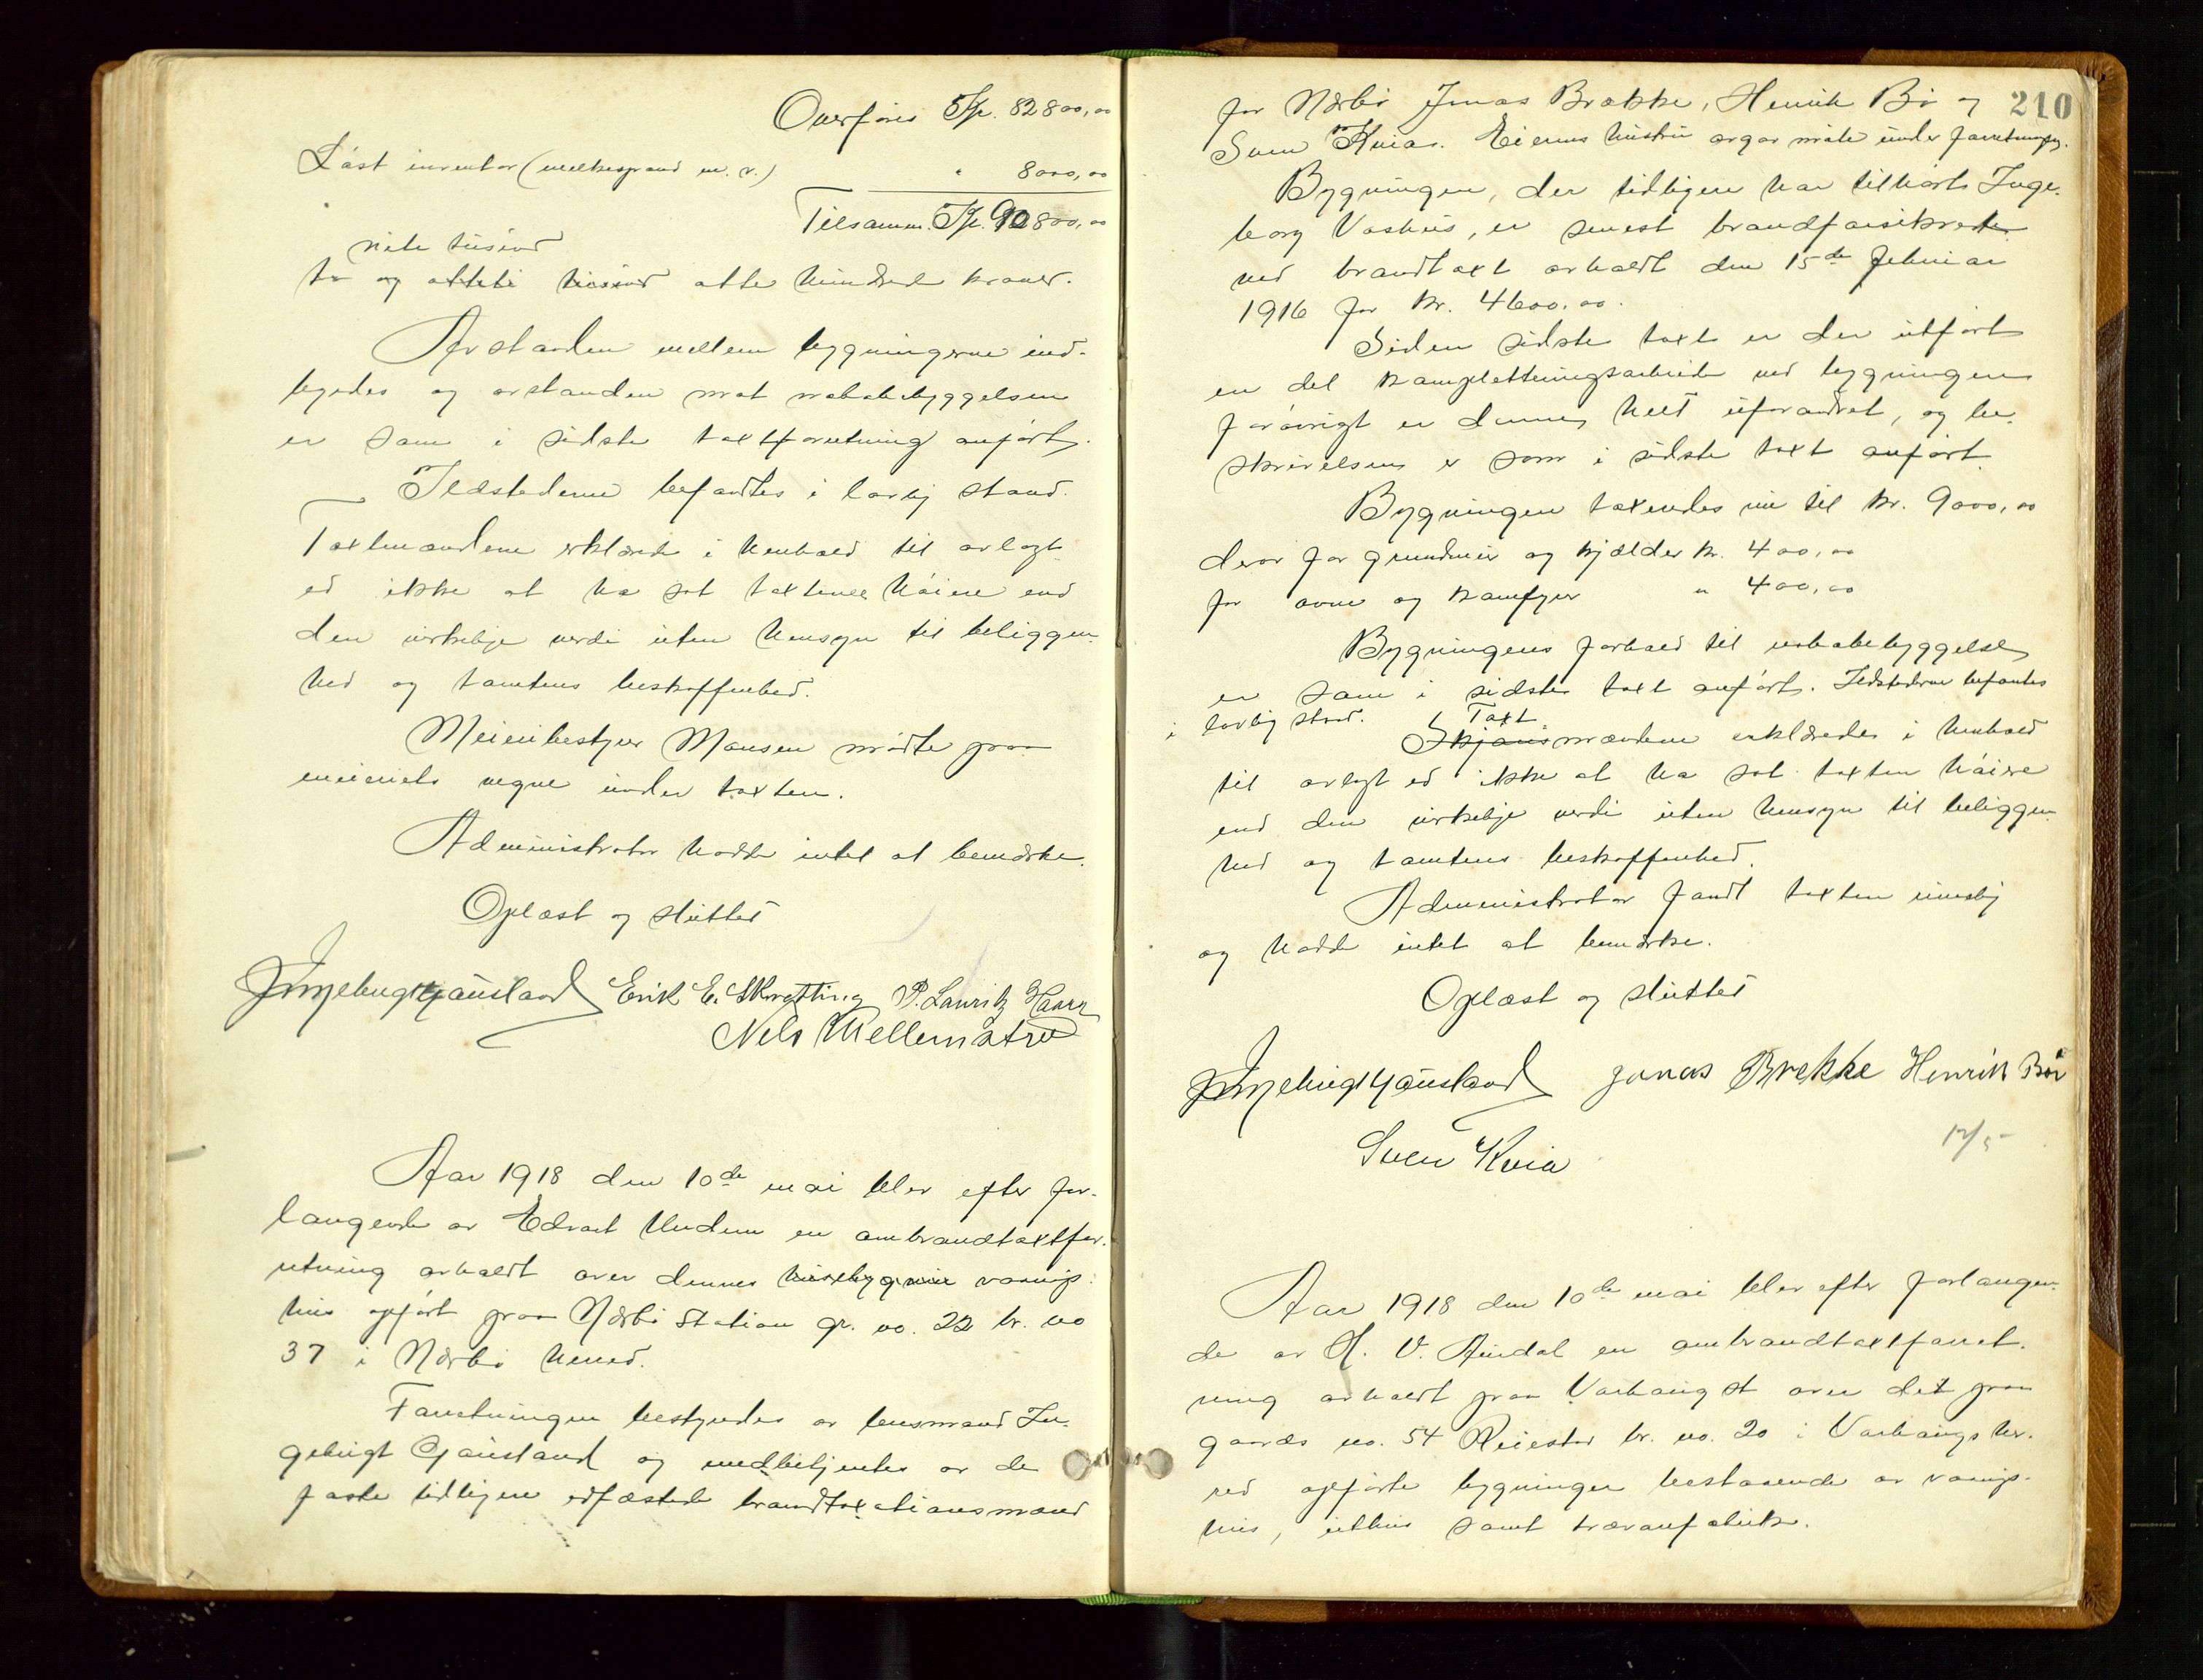 Overføres Kr. 82800,00
Løst inventar (melkespand m. v.) " 8000,00
Tilsamm. Kr. 90800,00
niti tusind
to og otteti tusind otte hundrede kroner.
Avstanden mellem bygningerne ind-
byrdes og avstanden mot nabobebyggelsen
er som i sidste taxtforretning anført.
Ildstederne befandtes i lovlig stand.
Taxtmændene erklærte i henhold til avlagt
ed ikke at ha sat taxterne høiere end
den virkelige verdi uten hensyn til beliggen-
hed og tomtens beskaffenhed.
Meieribestyrer Monsen møtte paa
meieriets vegne under taxten.
Administrator hadde intet at bemærke.
Oplæst og sluttet
Ingebrigt Gausland Erik E. Skretting P. Lauritz Haarr
Nels Mellemstrø
Aar 1918 den 10de mai blev efter for-
langende av Edvart Undem en ombrandtaxtfor-
retning avholdt over dennes vaanings-
hus opført paa Nærbø Station gr. no. 22 br. no
37 i Nærbø herred.
Forretningen bestyredes av lensmand In-
gebrigt Gausland og medbetjentes av de
faste tidligere edfæstede brandtaxationsmænd
210
for Nærbø Jonas Brække, Henrik Bø og
Sven Kvia. Eierens hustru avgav møte under forretningen.
Bygningen, der tidligere har tilhørt Inge-
borg Vashus, er senest brandforsikret
ved brandtaxt avholdt den 15de februar
1916 for kr. 4600.00.
Siden sidste taxt er der utført
en del kompletteringsarbeide ved bygningen
forøvrigt er denne helt uforandret, og be-
skrivelsen er som i sidste taxt anført.
Bygningen taxeredes nu til kr. 9000,00
derav for grundmur og kjælder kr. 400,00
for ovne og komfyr " 400,00
Bygningens forhold til nabobebyggelse
er som i sidste taxt anført. Ildstederne befantes
i lovlig stand. Taxt
Skjønsmændene erklærede i henhold
til avlagt ed ikke at ha sat taxten høiere
end den virkelige verdi uten hensyn til beliggen-
hed og tomtens beskaffenhed.
Administrator fandt taxten rimelig
og hadde intet at bemærke.
Oplæst og sluttet
Ingebrigt Gausland Jonas Brekke Henrik Bø
Sven Kvia
12/5
Aar 1918 den 10de mai blev efter forlangen-
de av H. V. Aindal en ombrandtaxtforret-
ning avholdt paa Varhaug st over det paa
gaards no. 54 Reiestad br. no. 20 i Varhaugs her-
red opførte bygninger bestaaende av vaanings-
hus, uthus samt trævarefabrik.